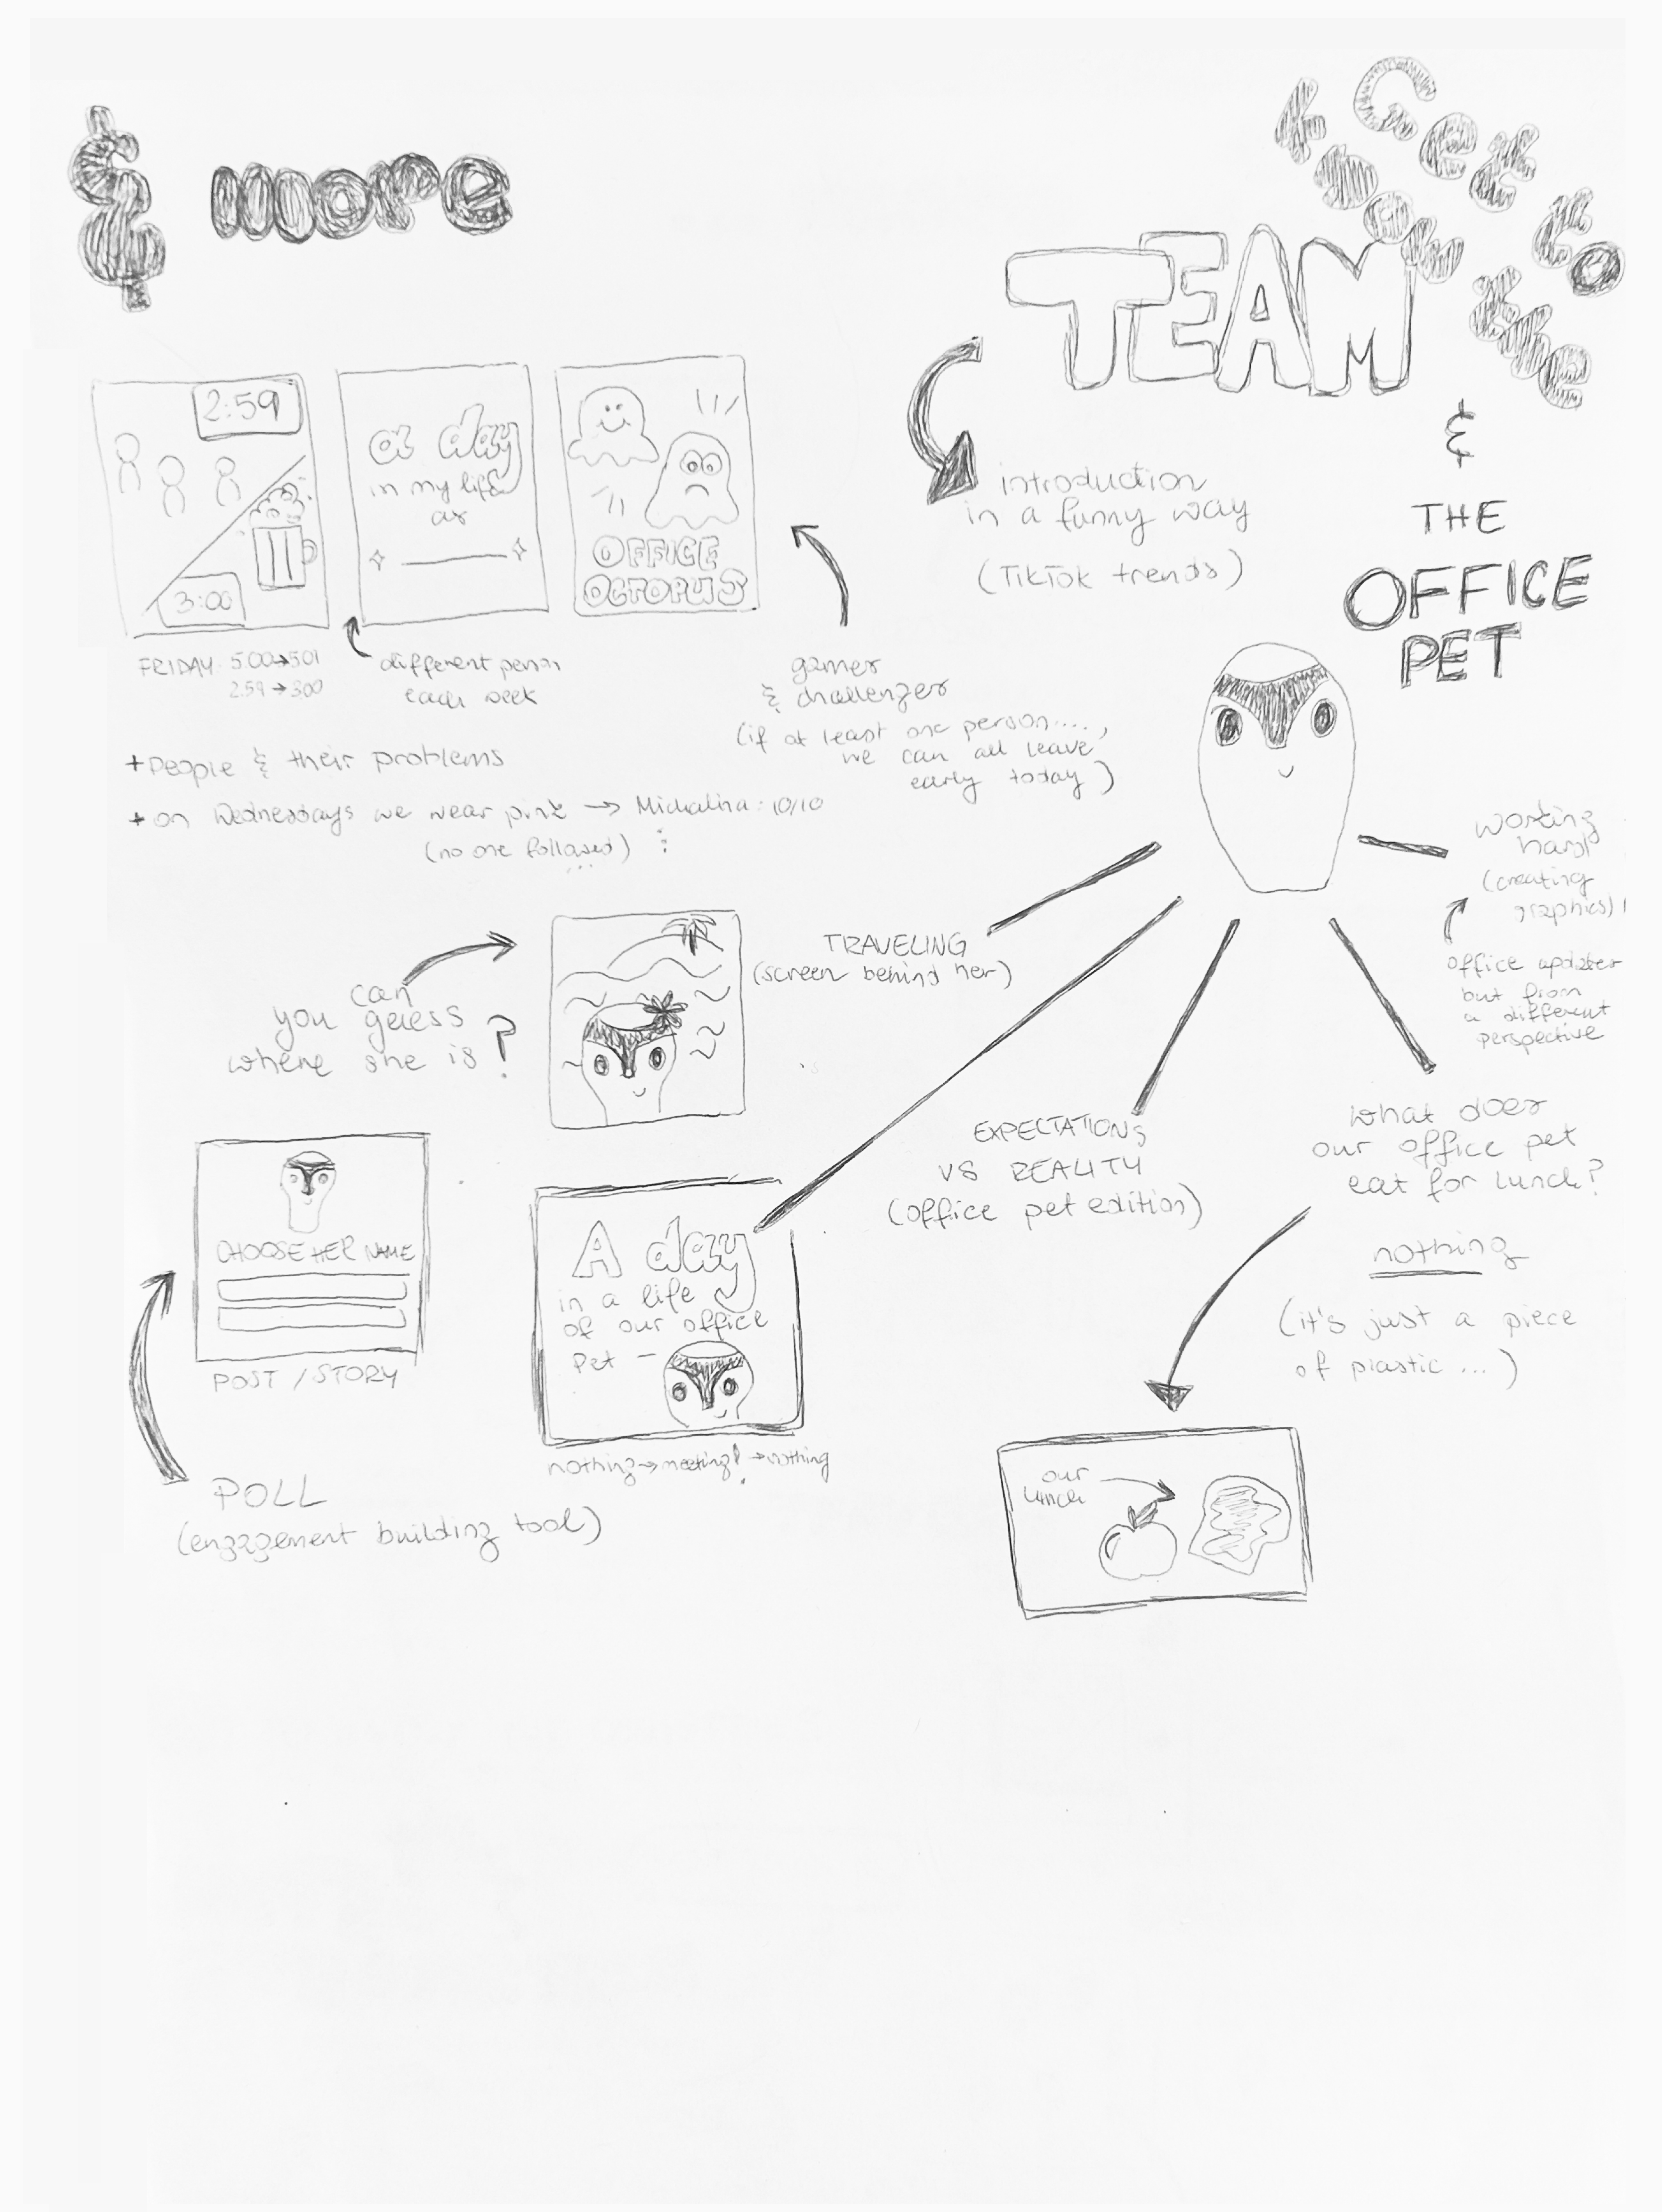 & more
Get to
know the
TEAM
&
THE
OFFICE
PET
introduction
in a funny way
(TikTok trends)
2:59
3:00
FRIDAY 5:00→5:01
2:59→3:00
a day
in my life
as
different person
each week
OFFICE
OCTOPUS
games
& challenges
(if at least one person....,
we can all leave
early today)
+ People & their problems
+ on Wednesdays we wear pink → Michalina: 10/10
(no one followed) :
...
working
hard
(creating
graphics)
office updates
but from
a different
perspective
TRAVELING
(screen behind her)
can
you guess
where she is?
EXPECTATIONS
VS REALITY
(office pet edition)
what does
our office pet
eat for lunch?
nothing
(it's just a piece
of plastic ...)
our
lunch
A day
in a life
of our office
pet -
nothing→meeting!→nothing
CHOOSE HER NAME
POST / STORY
POLL
(engagement building tool)